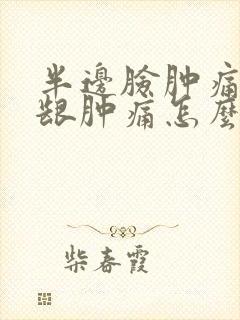 半邊臉肿痛
龈肿痛怎麼
柴春霞